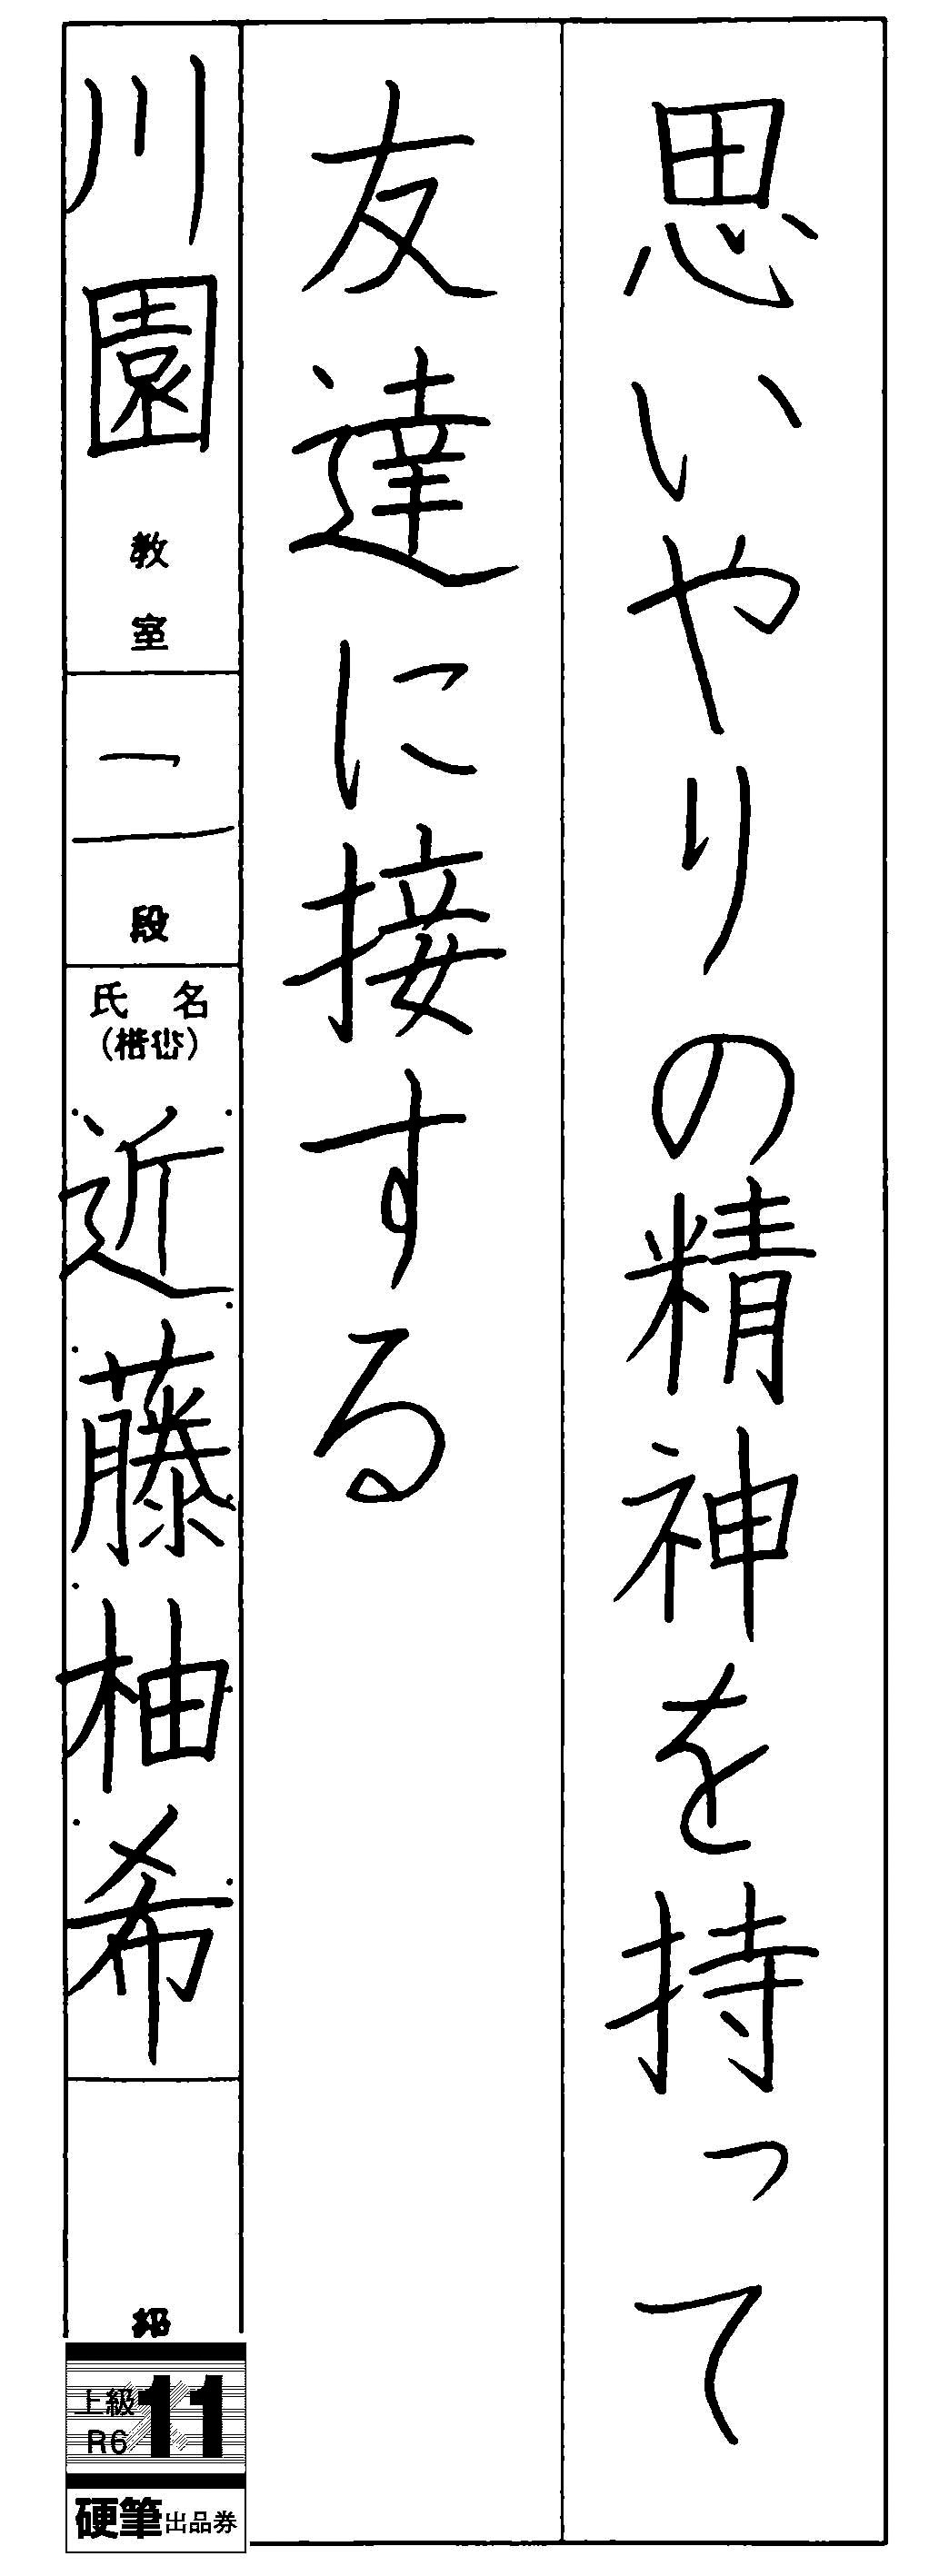 思いやりの精神を持って
友達に接する
川園教室
二段
氏名
(楷書)
近藤柚希
級
上級 11
R6
硬筆出品券